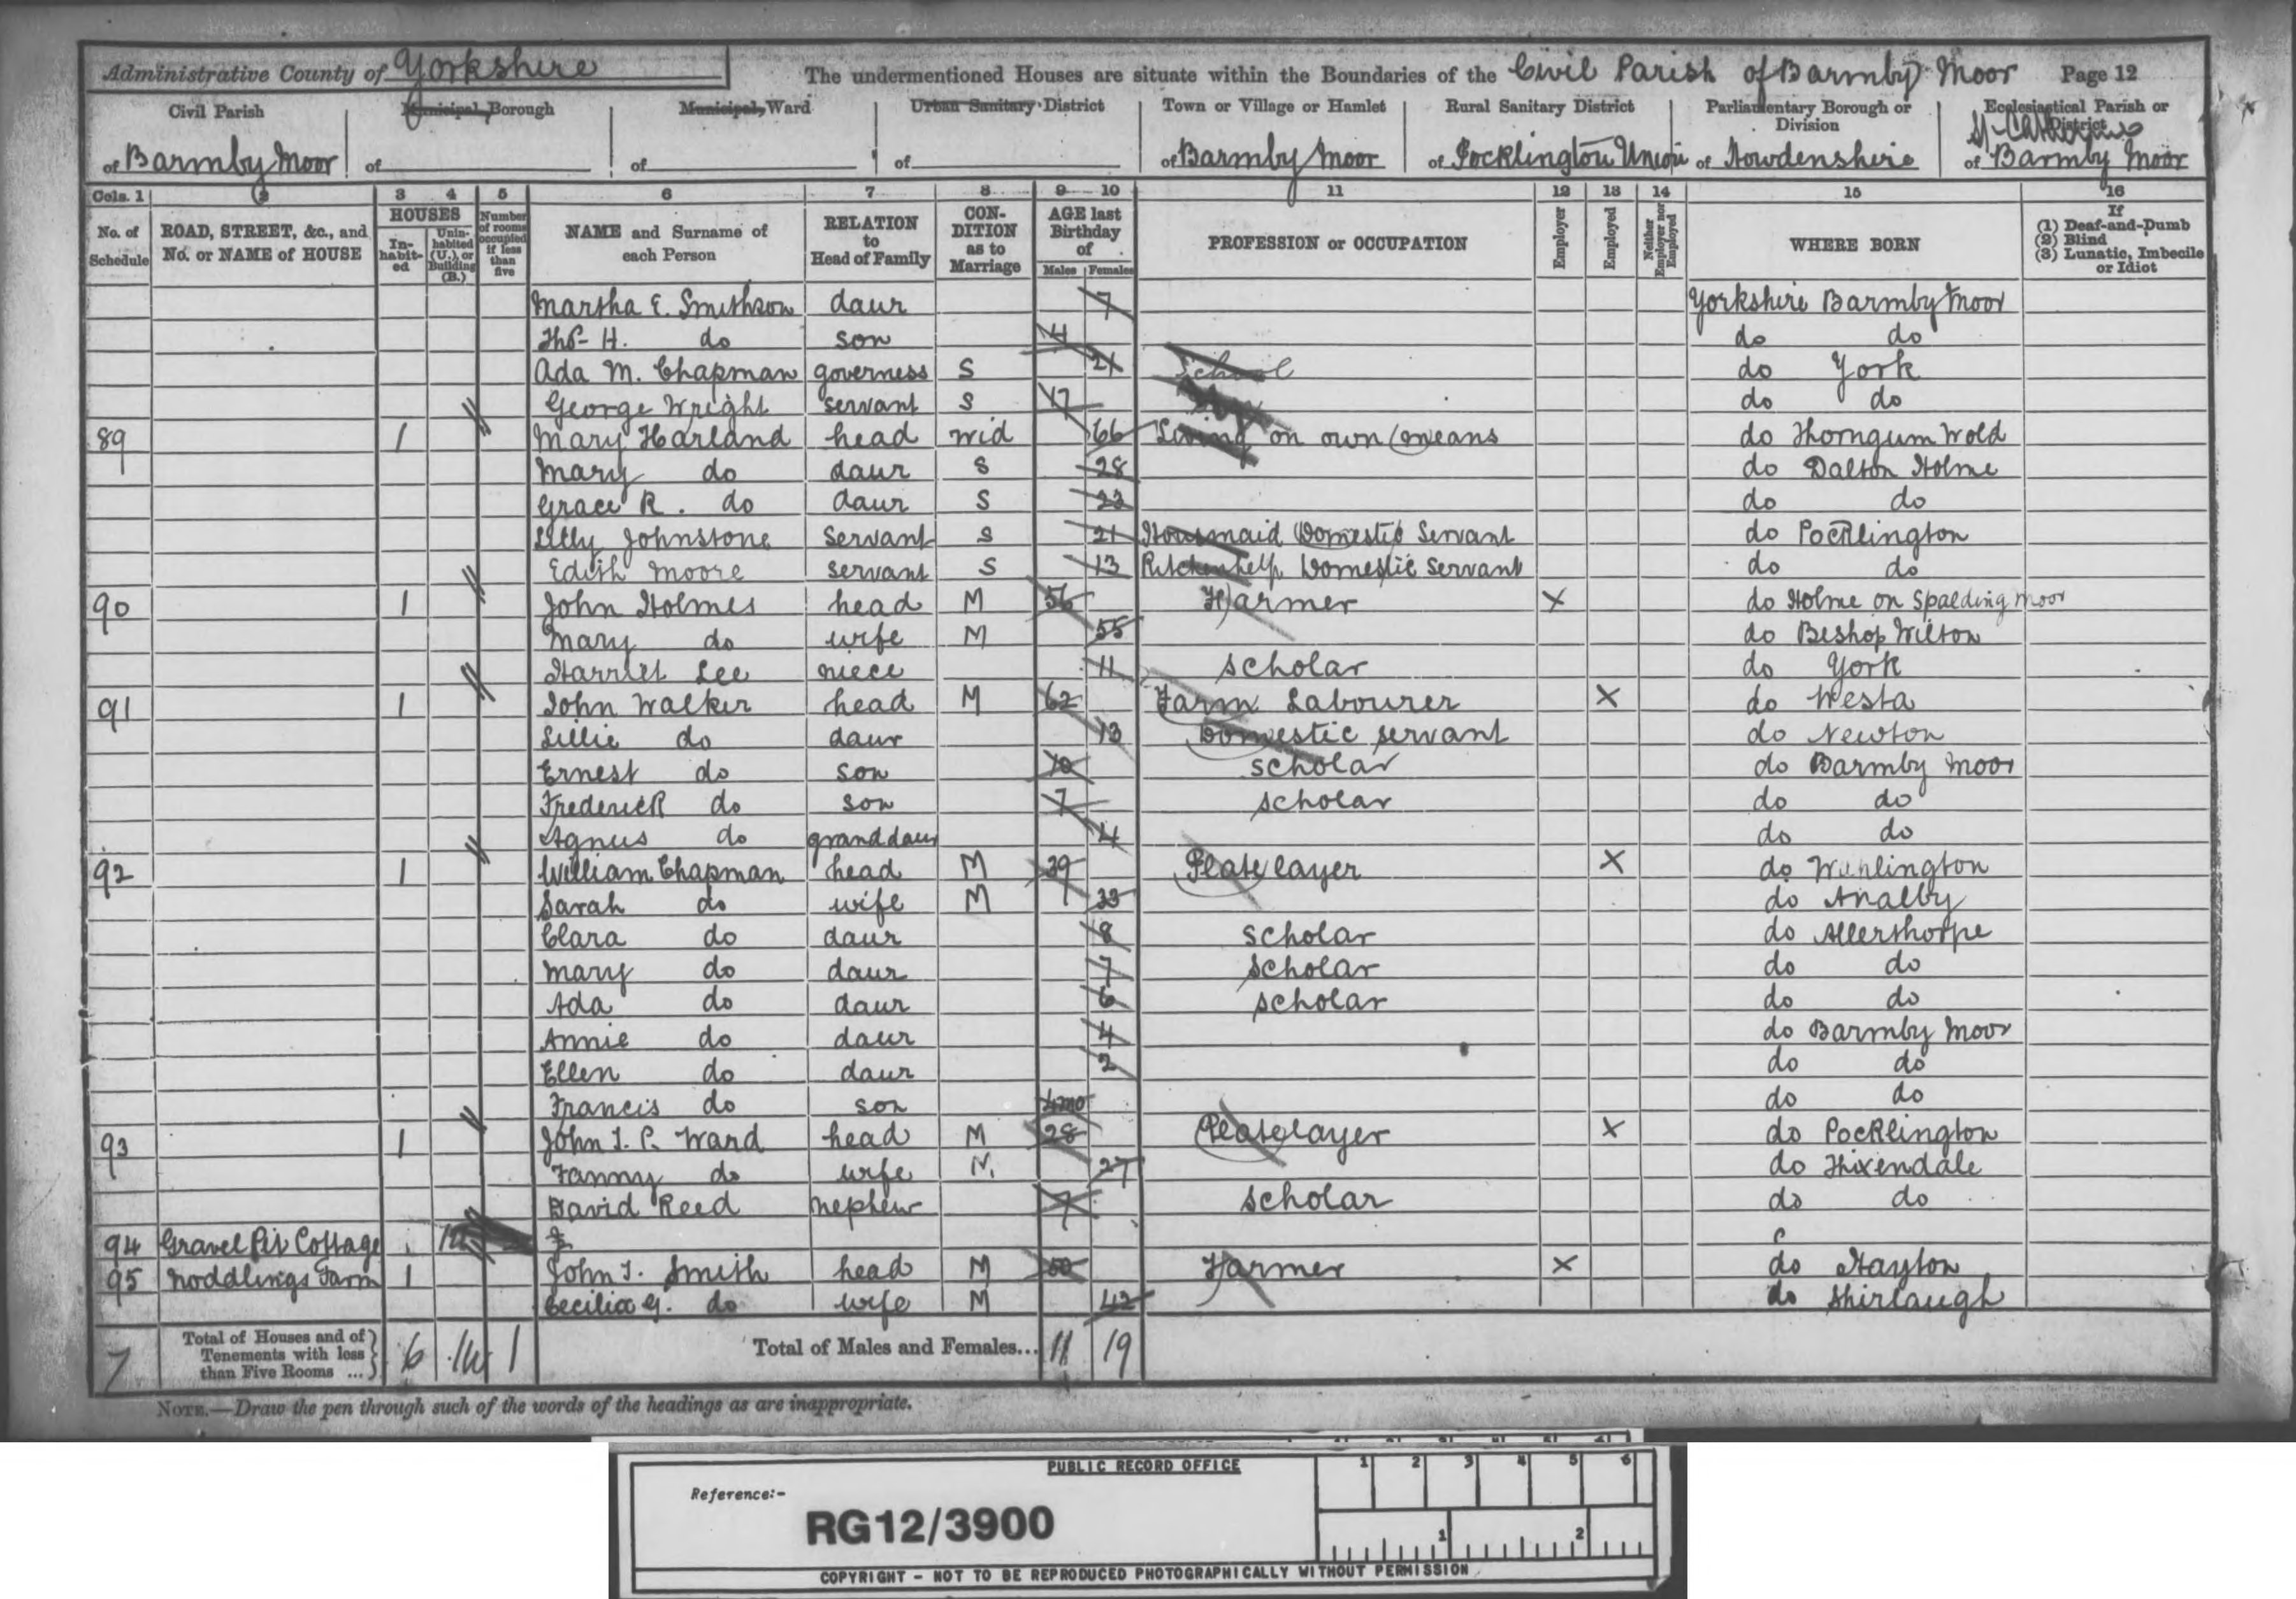 Administrative County of Yorkshire The undermentioned Houses are situate within the Boundaries of the Civil Parish of Barmby Moor Page 12
Civil Parish Municipal Borough Municipal Ward Urban Sanitary District Town or Village or Hamlet Rural Sanitary District Parliamentary Borough or Division Ecclesiastical Parish or District
St Catherines
of Barmby Moor of of of of Barmby Moor of Pocklington Union of Howdenshire of Barmby Moor
Cols. 1 2 3 4 5 6 7 8 9 10 11 12 13 14 15 16
No. of Schedule ROAD, STREET, &c., and No. or NAME of HOUSE HOUSES In-habit-ed Unin-habited (U.), or Building (B.) Number of rooms occupied if less than five NAME and Surname of each Person RELATION to Head of Family CON-DITION as to Marriage AGE last Birthday of Males Females PROFESSION or OCCUPATION Employer Employed Neither Employer nor Employed WHERE BORN If (1) Deaf-and-Dumb (2) Blind (3) Lunatic, Imbecile or Idiot
Martha E. Smithson daur 7 Yorkshire Barmby Moor
Thos H. do son 4 do do
Ada M. Chapman governess S 21 School do York
George Wright servant S 17 do do
89 1 Mary Harland head wid 66 Living on own means do Thorngum Wold
Mary do daur S 28 do Dalton Holme
Grace R. do daur S 23 do do
Lilly Johnstone servant S 21 Housmaid Domestic Servant do Pocklington
Edith Moore servant S 13 Kitchenhelp Domestic servant do do
90 1 John Holmes head M 56 Farmer X do Holme on Spalding moor
Mary do wife M 55 do Bishop Wilton
Harriet Lee niece 11 scholar do York
91 1 John Walker head M 62 Farm Labourer X do Westa
Lillie do daur 13 Domestic servant do Newton
Ernest do son 10 scholar do Barmby Moor
Frederick do son 7 scholar do do
Agnus do granddaur 4 do do
92 1 William Chapman head M 39 Platelayer X do
Sarah do wife M 33 do Analby
Clara do daur 8 scholar do Allerthorpe
Mary do daur 7 scholar do do
Ada do daur 6 scholar do do
Annie do daur 4 do Barmby Moor
Ellen do daur 2 do do
Francis do son 4mo do do
93 1 John T. P. Ward head M 28 Platelayer X do Pocklington
Fanny do wife M 27 do Thixendale
David Reed nephew 7 scholar do do
94 Gravel Pit Cottage
95 Noddlings Farm 1 John T. Smith head M 50 Farmer X do Hayton
Cecilia G. do wife M 42 do Shirlaugh
7 Total of Houses and of Tenements with less than Five Rooms ... 6 1 Total of Males and Females... 11 19
NOTE.—Draw the pen through such of the words of the headings as are inappropriate.
PUBLIC RECORD OFFICE
1 2 3 4 5 6
Reference:-
RG12/3900
1 2
COPYRIGHT - NOT TO BE REPRODUCED PHOTOGRAPHICALLY WITHOUT PERMISSION